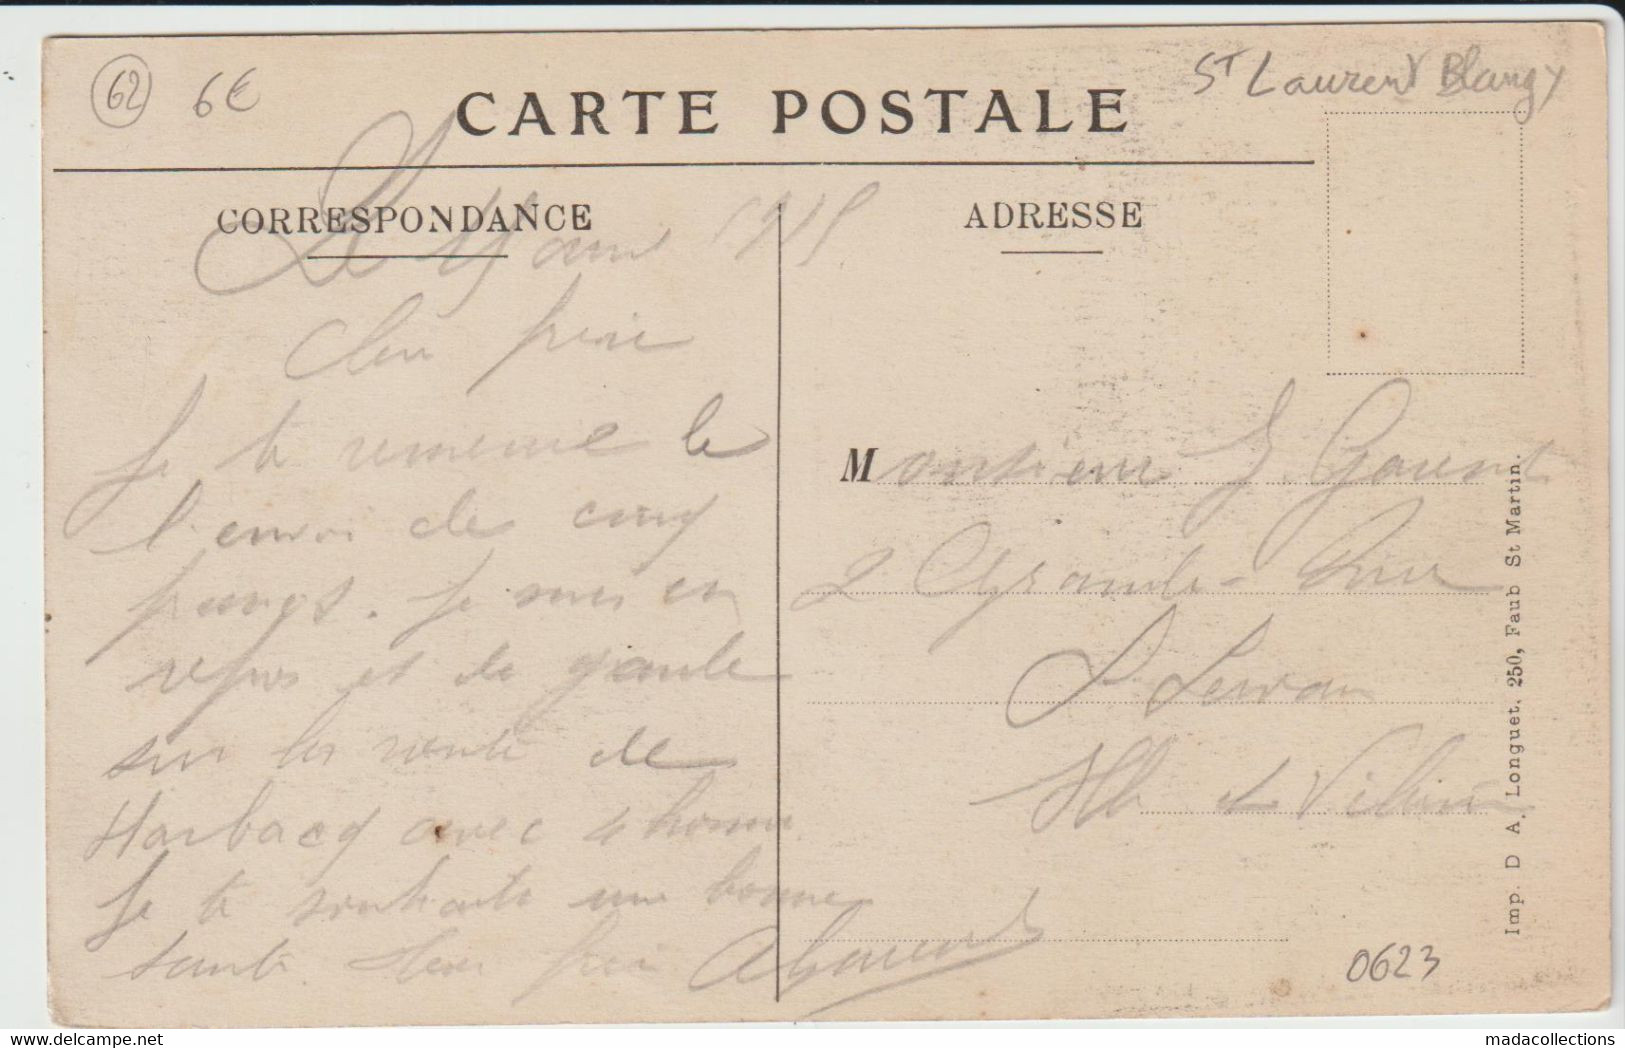 62
6€
CARTE POSTALE
ST Laurent Blangy
CORRESPONDANCE
Le 1915
Cher frère
Je te remercie le
l'envoi de cinq
francs. Je suis en
repos et de garde
sur les route de
Harbacq avec 4 homme
Je te souhaite une bonne
santé cher frère
ADRESSE
Monsieur
2 Grande-Rue
St Servan
Ille et Vilaine
Imp. D A. Longuet, 250, Faub St Martin.
0623
www.madacollections.com